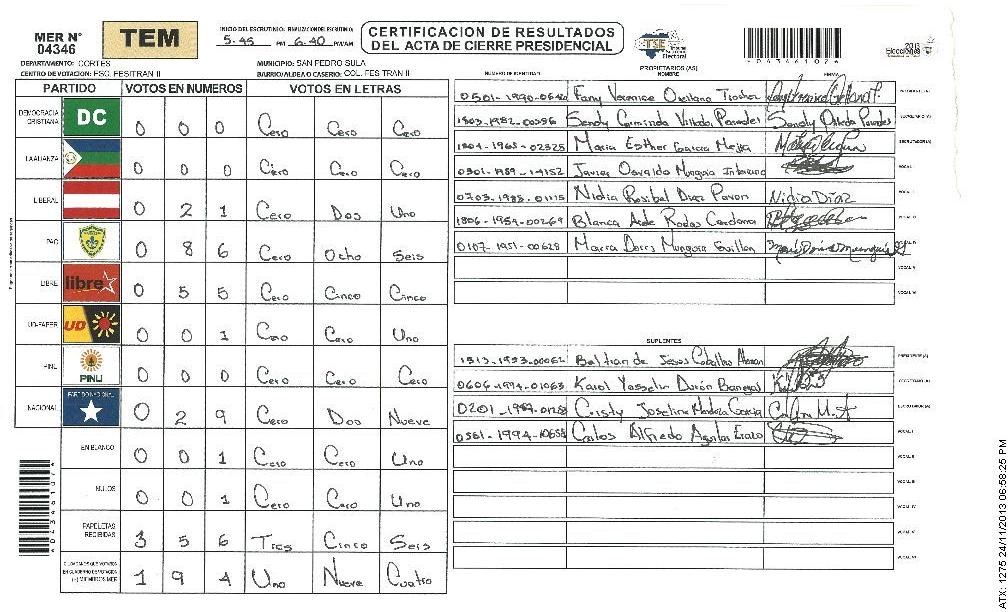 MER N° 04346
TEM
INICIO DEL ESCRUTINIO: FINALIZACION DEL ESCRUTINIO
5:45 PM 6:40 PM/AM
CERTIFICACION DE RESULTADOS
DEL ACTA DE CIERRE PRESIDENCIAL
TSE
Tribunal Supremo Electoral
2013
Elecciones
DEPARTAMENTO: CORTES
MUNICIPIO: SAN PEDRO SULA
CENTRO DE VOTACION: ESC. FESITRAN II
BARRIO/ALDEA O CASERIO: COL. FESITRAN II
PARTIDO VOTOS EN NUMEROS VOTOS EN LETRAS
DEMOCRACIA CRISTIANA DC 0 0 0 Cero Cero Cero
LA ALIANZA 0 0 0 Cero Cero Cero
LIBERAL 0 2 1 Cero Dos Uno
PAC 0 8 6 Cero Ocho Seis
LIBRE libre 0 5 5 Cero Cinco Cinco
UD-FAPER UD 0 0 1 Cero Cero Uno
PINU PINU 0 0 0 Cero Cero Cero
NACIONAL PARTIDO NACIONAL 0 2 9 Cero Dos Nueve
EN BLANCO 0 0 1 Cero Cero Uno
NULOS 0 0 1 Cero Cero Uno
PAPELETAS RECIBIDAS 3 5 6 Tres Cinco Seis
CIUDADANOS QUE VOTARON EN CUADERNO DE VOTACION (+) MIEMBROS MER 1 9 4 Uno Nueve Cuatro
NUMERO DE IDENTIDAD PROPIETARIOS (AS) NOMBRE FIRMA
Fany Veronica Orellana PRESIDENTE (A)
1803-1982-00396 Sendy Carminda Villeda Paredes Sendy Villeda Paredes SECRETARIO (A)
1804-1965-02325 Maria Esther Garcia Mejia ESCRUTADOR (A)
0501-1989-14152 Javier Osvaldo Munguia VOCAL I
0703-1983-01115 Nidia Rosibel Diaz Pavon Nidia Díaz
1806-1959-00269 Blanca Aide Rodas Cardona
0107-1951-00628 Maria Doris Munguia VOCAL IV
VOCAL V
VOCAL VI
SUPLENTES
1513-1993-00062 Beltran de Jesus Caballero PRESIDENTE (A)
0606-1994-01063 Karol Yosselin Durón Banegas SECRETARIO (A)
Cristy Joselina Garcia ESCRUTADOR (A)
Carlos Alfredo Aguilar Erazo VOCAL I
VOCAL II
VOCAL III
VOCAL IV
VOCAL V
VOCAL VI
ATX: 1275 24/11/2013 06:58:25 PM